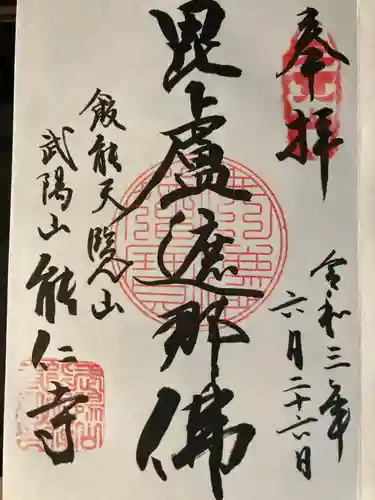 奉拝
令和三年
六月二十六日
毘盧遮那佛
飯能天覧山
武陽山
能仁寺